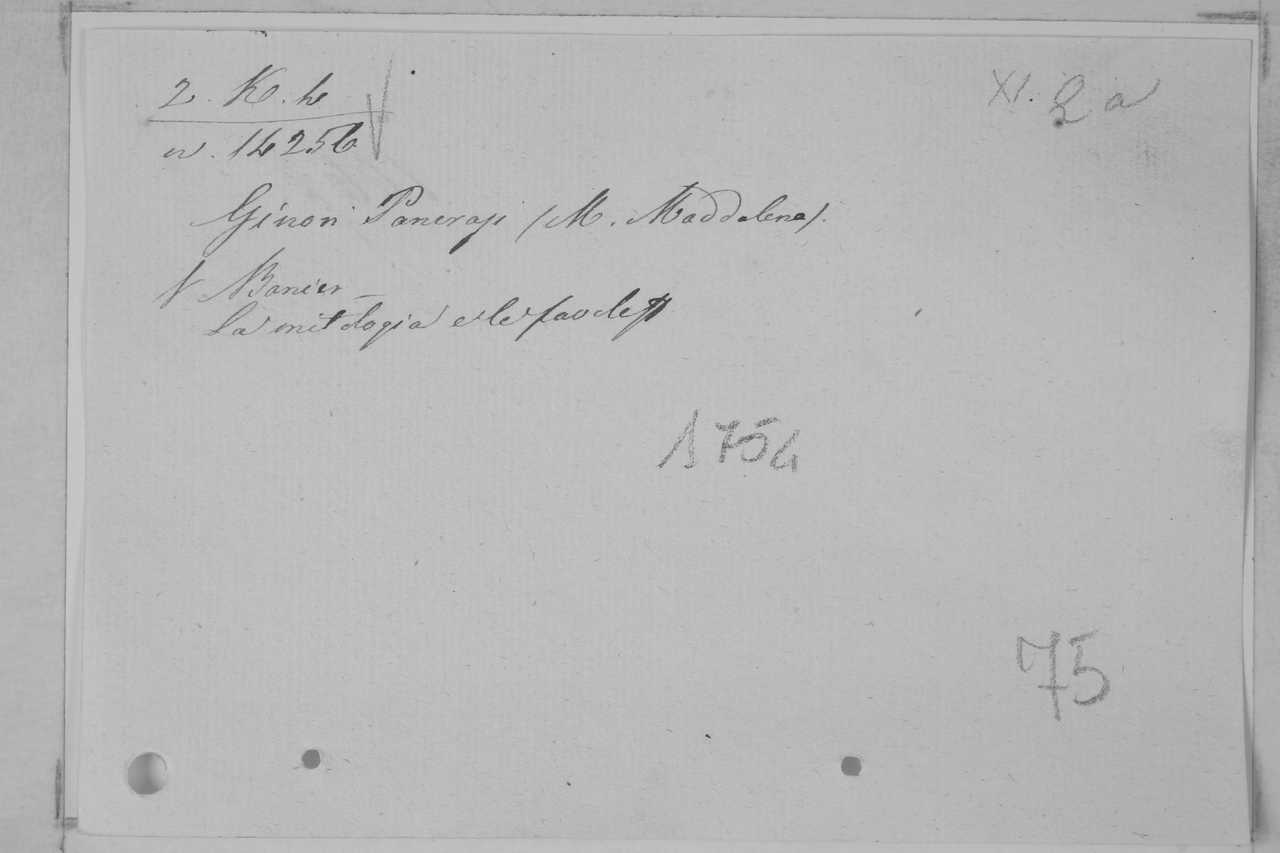 2. K. h XI. 2 a
n. 14256
Ginori Panerai (M. Maddalena).
V Banier
La mitologia e le favole
1754
75